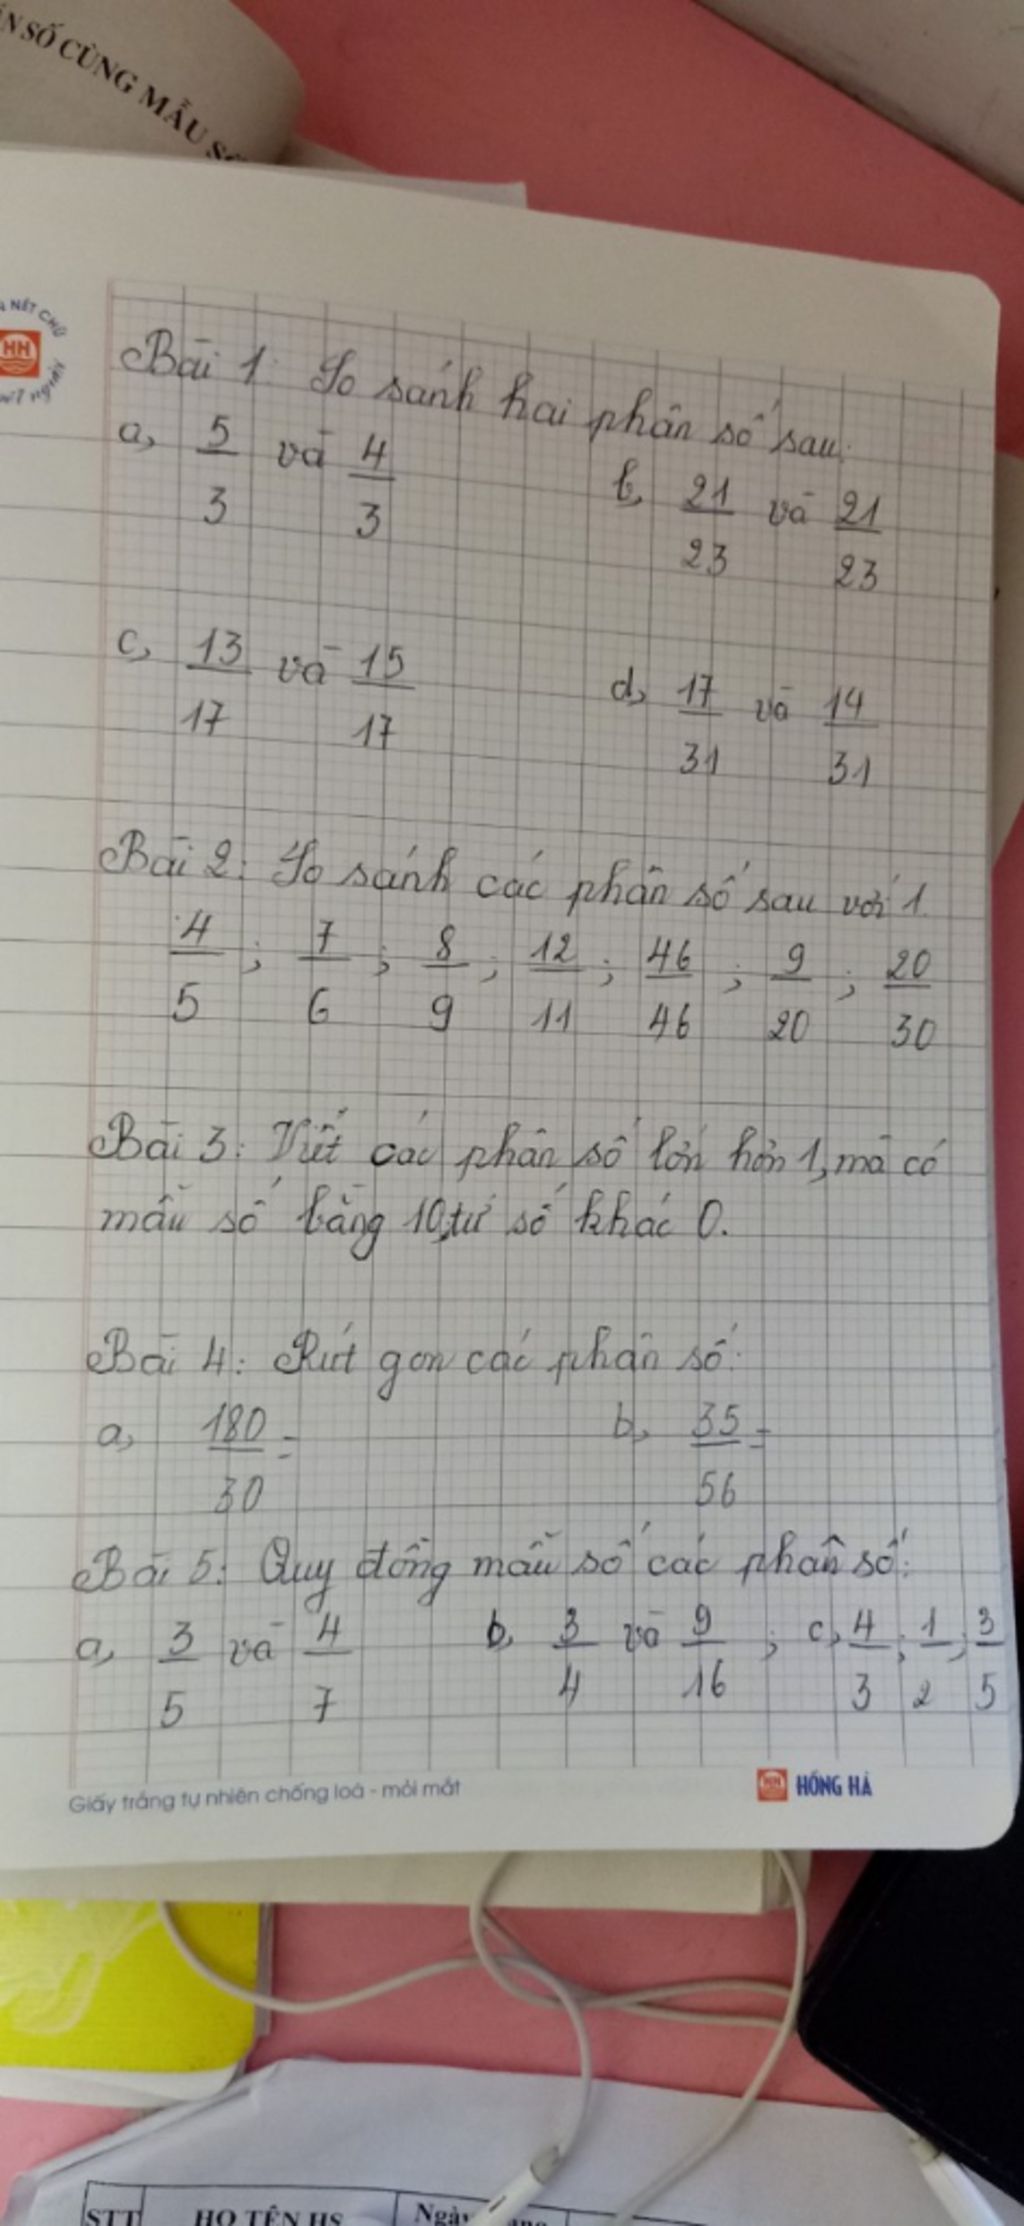 N SỐ CÙNG MẪU SỐ
NÉT CHỮ
HH
Bài 1: So sánh hai phân số sau:
a, 5/3 và 4/3
b, 21/23 và 21/23
c, 13/17 và 15/17
d, 17/31 và 14/31
Bài 2: So sánh các phân số sau với 1
4/5 ; 7/6 ; 8/9 ; 12/11 ; 46/46 ; 9/20 ; 20/30
Bài 3: Viết các phân số lớn hơn 1, mà có
mẫu số bằng 10, tử số khác 0.
Bài 4: Rút gọn các phân số:
a, 180/30 =
b, 35/56 =
Bài 5: Quy đồng mẫu số các phân số:
a, 3/5 và 4/7
b, 3/4 và 9/16 ; c, 4/3 ; 1/2 ; 3/5
Giấy trắng tự nhiên chống loá - mỏi mắt
HH HỒNG HÀ
STT HỌ TÊN HS Ngày